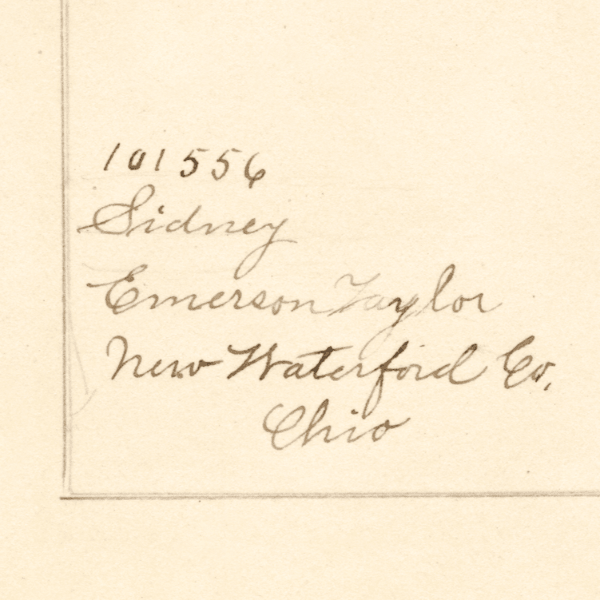 101556
Sidney
Emerson Taylor
New Waterford Co.
Ohio